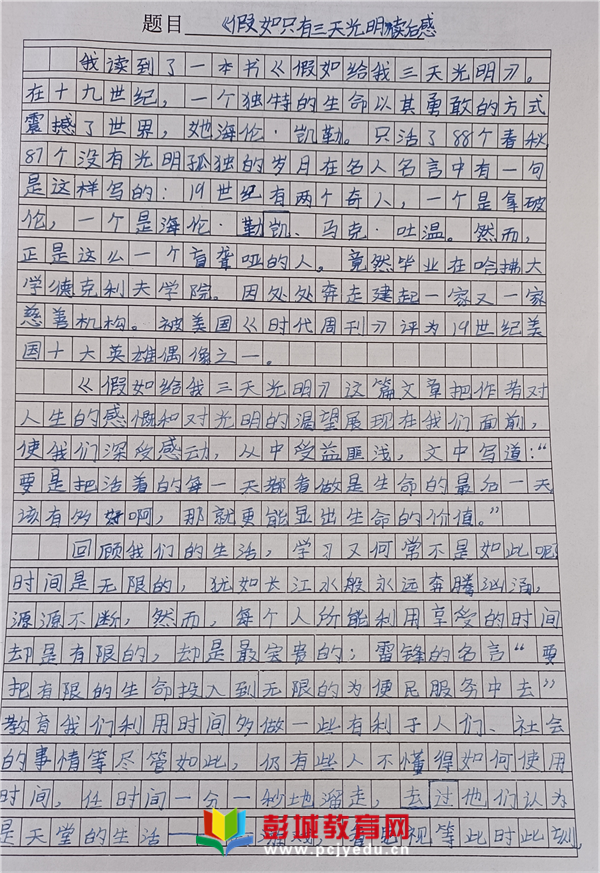 题目 《假如只有三天光明》读后感
我读到了一本书《假如给我三天光明》。
在十九世纪，一个独特的生命以其勇敢的方式
震撼了世界，她海伦·凯勒。只活了88个春秋
87个没有光明孤独的岁月在名人名言中有一句
是这样写的：19世纪有两个奇人，一个是拿破
伦，一个是海伦·勒凯、马克·吐温。然而，
正是这么一个盲聋哑的人。竟然毕业在哈拂大
学德克利夫学院。因处处奔走建起一家又一家
慈善机构。被美国《时代周刊》评为19世纪美
国十大英雄偶像之一。
《假如给我三天光明》这篇文章把作者对
人生的感慨和对光明的渴望展现在我们面前，
使我们深受感动，从中受益匪浅，文中写道：“
要是把活着的每一天都看做是生命的最后一天
该有多好啊，那就更能显出生命的价值。”
回顾我们的生活，学习又何常不是如此呢
时间是无限的，犹如长江水般永远奔腾汹涌，
源源不断，然而，每个人所能利用享受的时间
却是有限的，却是最宝贵的；雷锋的名言“要
把有限的生命投入到无限的为便民服务中去”
教育我们利用时间多做一些有利于人们、社会
的事情等尽管如此，仍有些人不懂得如何使用
时间，任时间一分一秒地溜走，去过他们认为
是天堂的生活——视等此时此刻
彭城教育网
www.pcjyedu.cn